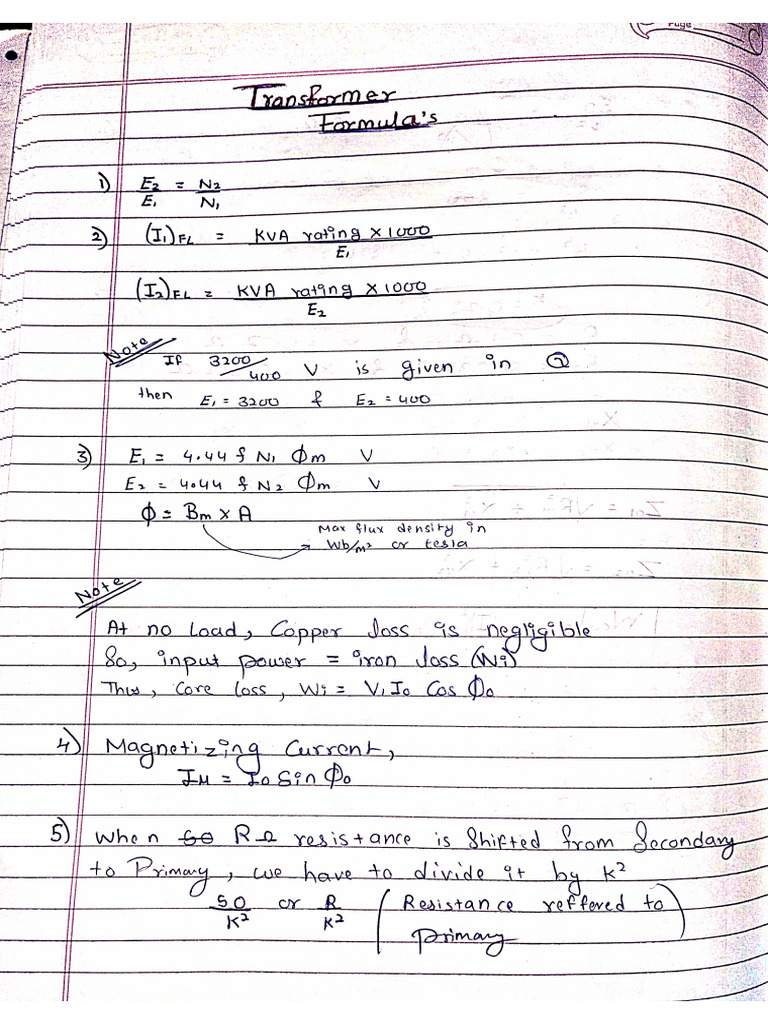 Page
Transformer
Formula's
1) E2/E1 = N2/N1
2) (I1)FL = KVA rating X 1000 / E1
(I2)FL = KVA rating X 1000 / E2
Note
If 3200/400 V is given in Q
then E1 = 3200 & E2 = 400
3) E1 = 4.44 f N1 Φm V
E2 = 4.44 f N2 Φm V
Φ = Bm x A
Max flux density in
Wb/m² or tesla
Note
At no Load, Copper loss is negligible
So, input power = iron loss (Wi)
Thus, Core loss, Wi = V1 I0 Cos Φ0
4) Magnetizing Current,
IM = I0 Sin Φ0
5) When R Ω resistance is Shifted from Secondary
to Primary, we have to divide it by K²
50/K² or R/K² (Resistance reffered to
primary)